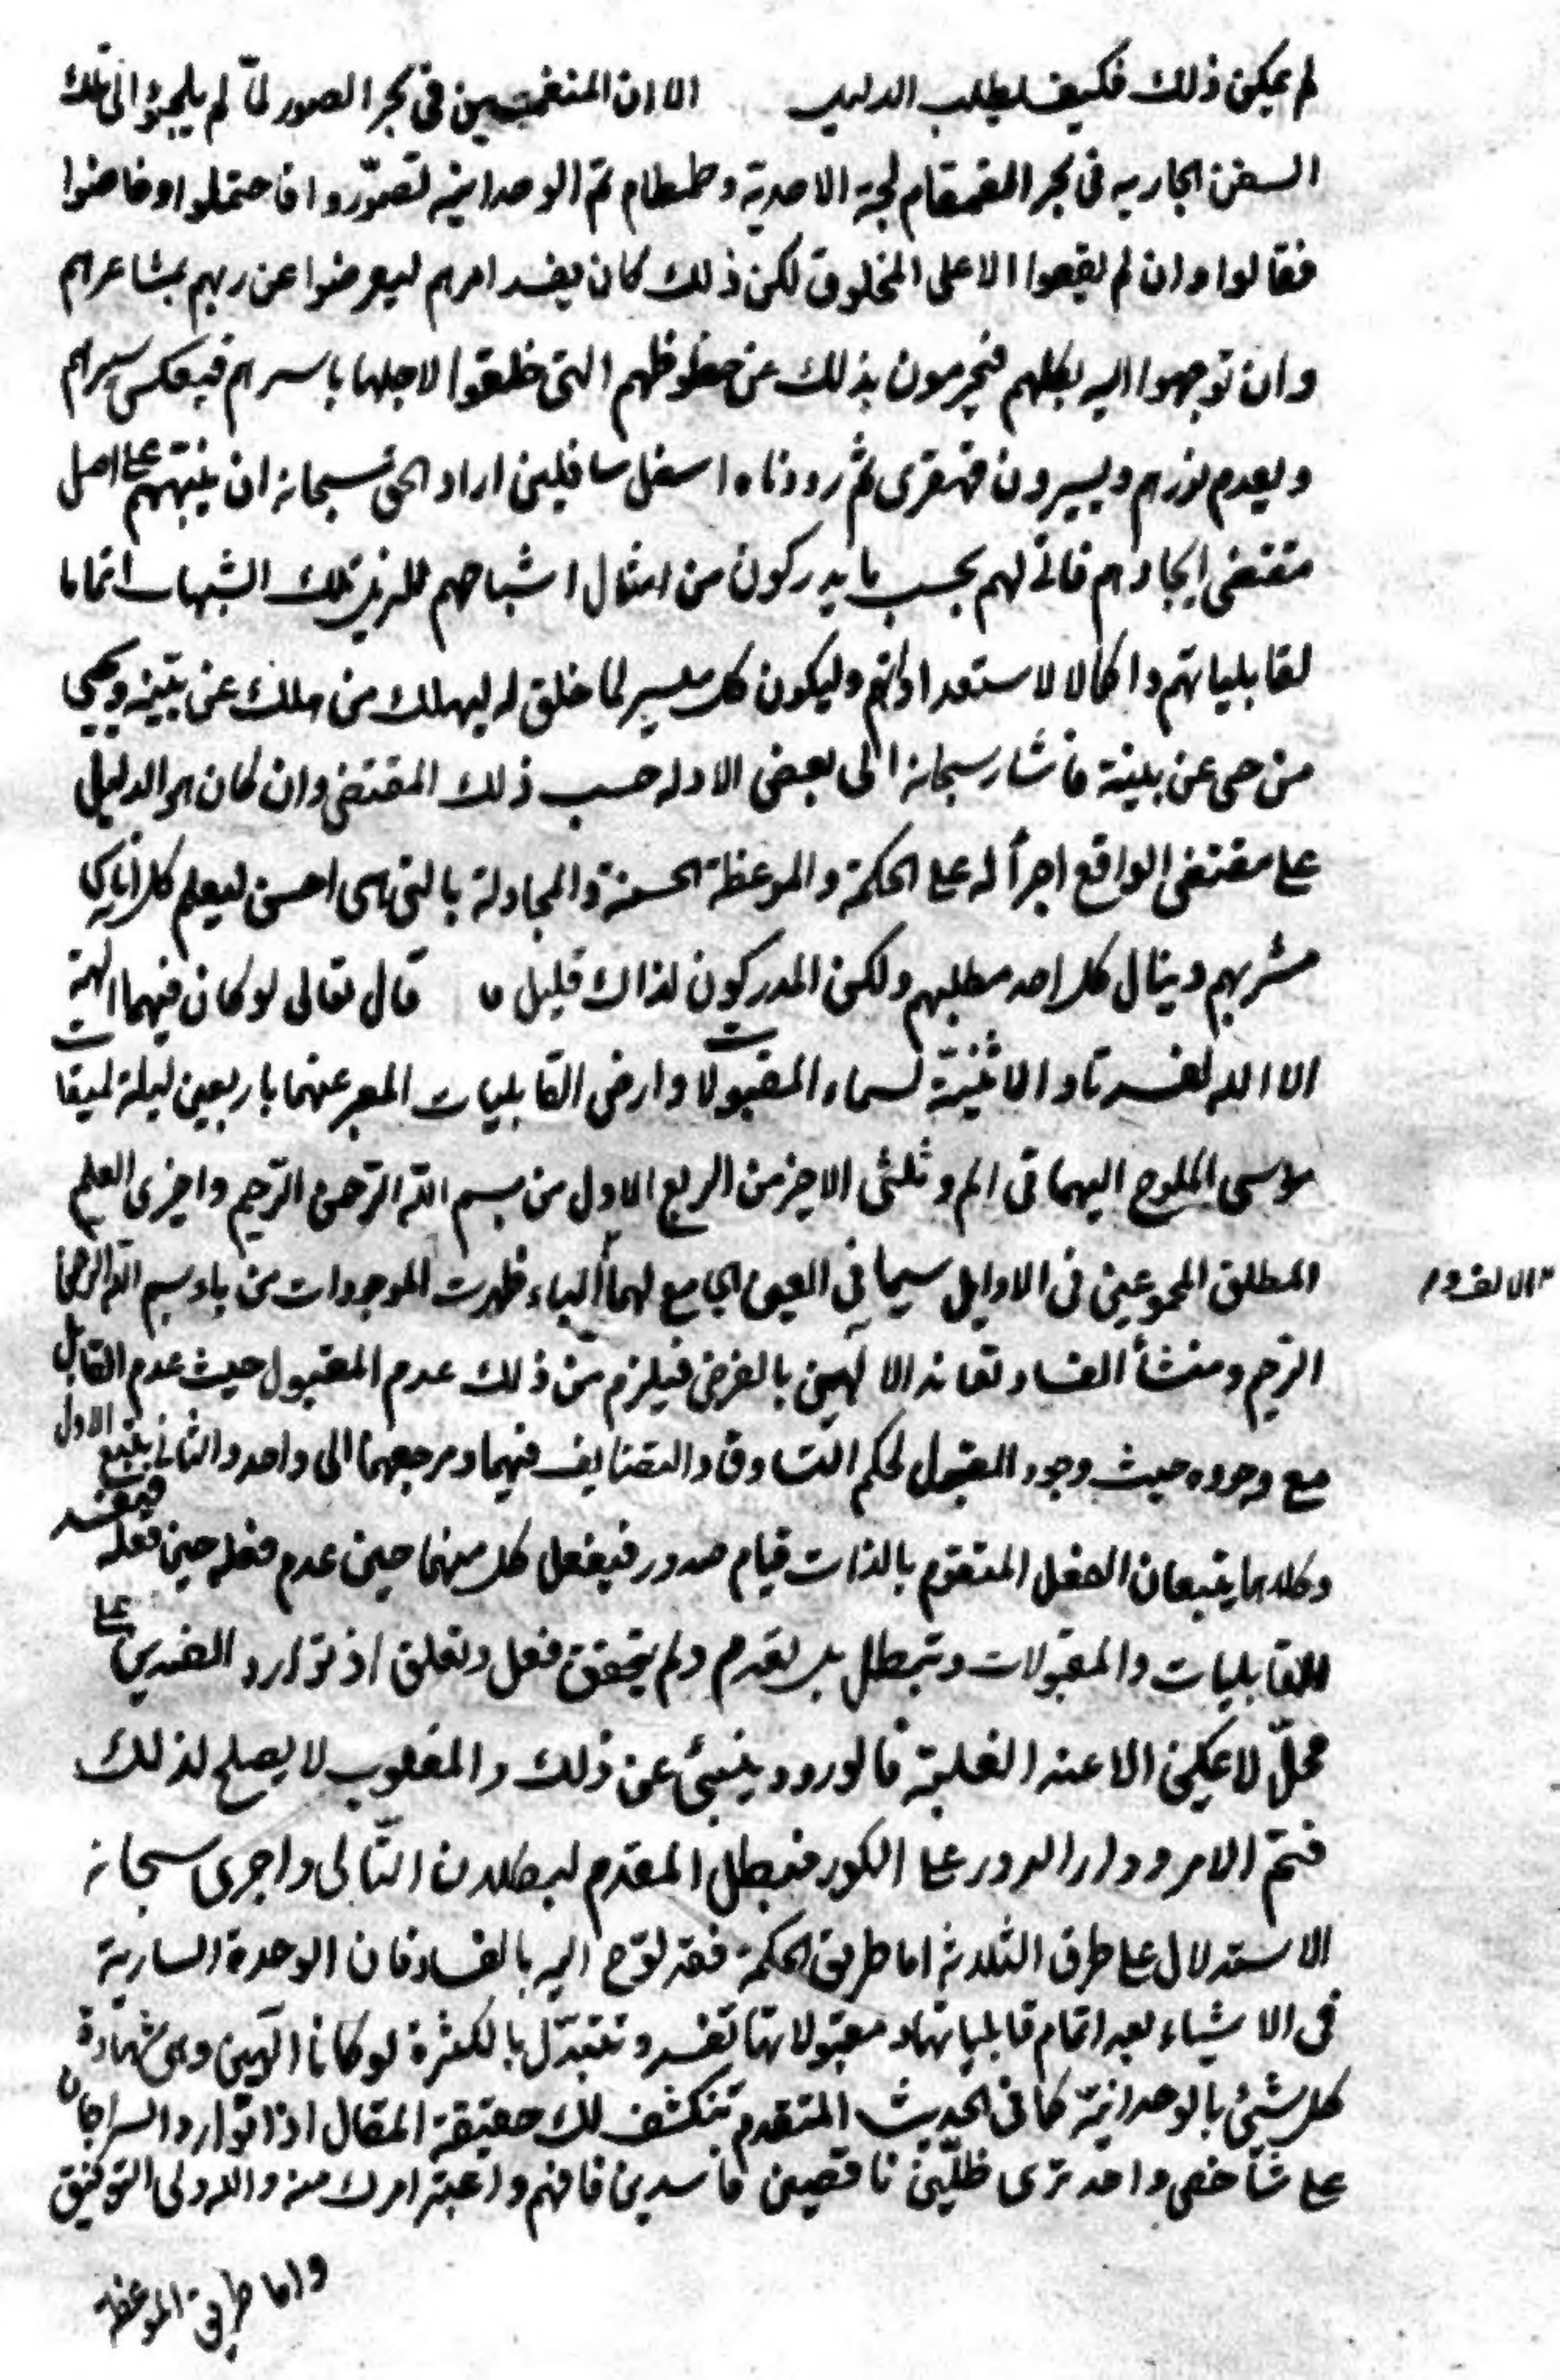 لم يمكن ذلك فكيف يطلب الدليل الا ان المنغمسين فى بحر الصور لمّا لم يلجئوا الى تلك
السفن الجاريه فى بحر القمقام لجة الاحدية وطمطام يمّ الوحدانيه تصوّروا فاحتملوا وخاضوا
فقالوا وان لم يقعوا الا على المخلوق لكن ذلك كان يفسد امرهم ليعرضوا عن ربهم بمشاعرهم
وان توجهوا اليه بكلهم فيحرمون بذلك عن حظوظهم التى خلقوا لاجلها باسرهم فيعكس سيرهم
ويعدم نورهم ويسيرون قهقرى ثم رددناه اسفل سافلين اراد الحق سبحانه ان ينبّههم على اصل
مقتضى ايجادهم فاتى لهم بحسب ما يدركون من امثال اشباحهم تلك الشبهات اتماما
لقابلياتهم واكمالا لاستعداداتهم وليكون كل ميسر لما خلق له ليهلك من هلك عن بيّنه ويحيى
من حى عن بينة فاشار سبحانه الى بعض الادله حسب ذلك المقتضى وان كان هو الدليل
على مقتضى الواقع اجرأ له على الحكمة والموعظة الحسنة والمجادلة بالتى هى احسن ليعلم كل اناس
مشربهم وينال كل احد مطلبهم ولكن المدركون لذاك قليل قال تعالى لو كان فيهما الهة
الا الله لفسدتا والاثنينيّة لسماء المقبولات وارض القابليات المعبر عنهما باربعين ليلة لميقات
موسى الملوح اليهما فى الم وثلثى الاخير من الربع الاول من بسم الله الرّحمن الرّحيم واخرى العلم
المطلق المجموعين فى الاوايل سيما فى العين الجامع لهما الباء ظهرت الموجودات من باء بسم الله الرحمن
الرّحيم ومنشأ الفساد تعاند الالهين بالفرض فيلزم من ذلك عدم المقبول حيث عدم القابل
مع وجوده حيث وجود المقبول لحكم التساوق والتضايف فيهما ومرجعهما الى واحد والثانى يتبع الاول
وكلاهما يتبعان الفعل المتقوم بالذات قيام صدور فيفعل كل منهما حين عدم فعله حين فعله فيفسد
القابليات والمقبولات وتبطل بل تعدم ولم يتحقق فعل وتعلق اذ توارد الضدين على
محلّ لا يمكن الا عند الغلبة فالورود ينبئ عن ذلك والمغلوب لا يصلح لذلك
فتمّ الامر ودار الدور على الكور فبطل المقدم لبطلان التّالى واجرى سبحانه
الاستدلال على طرق الثلاثه اما طريق الحكمة فقد لوّح اليه بالفساد فان الوحدة السارية
فى الاشياء بعد اتمام قابلياتها ومقبولاتها تفسد وتتبدّل بالكثرة لو كانا الهين وهى شهادة
كل شئ بالوحدانيّة كما فى الحديث المتقدم تنكشف لك حقيقة المقال اذا توارد السراجان
على شاخص واحد ترى ظلّين ناقصين فاسدين فافهم واعتبر امرك منه والله ولى التوفيق
واما طريق الموعظة